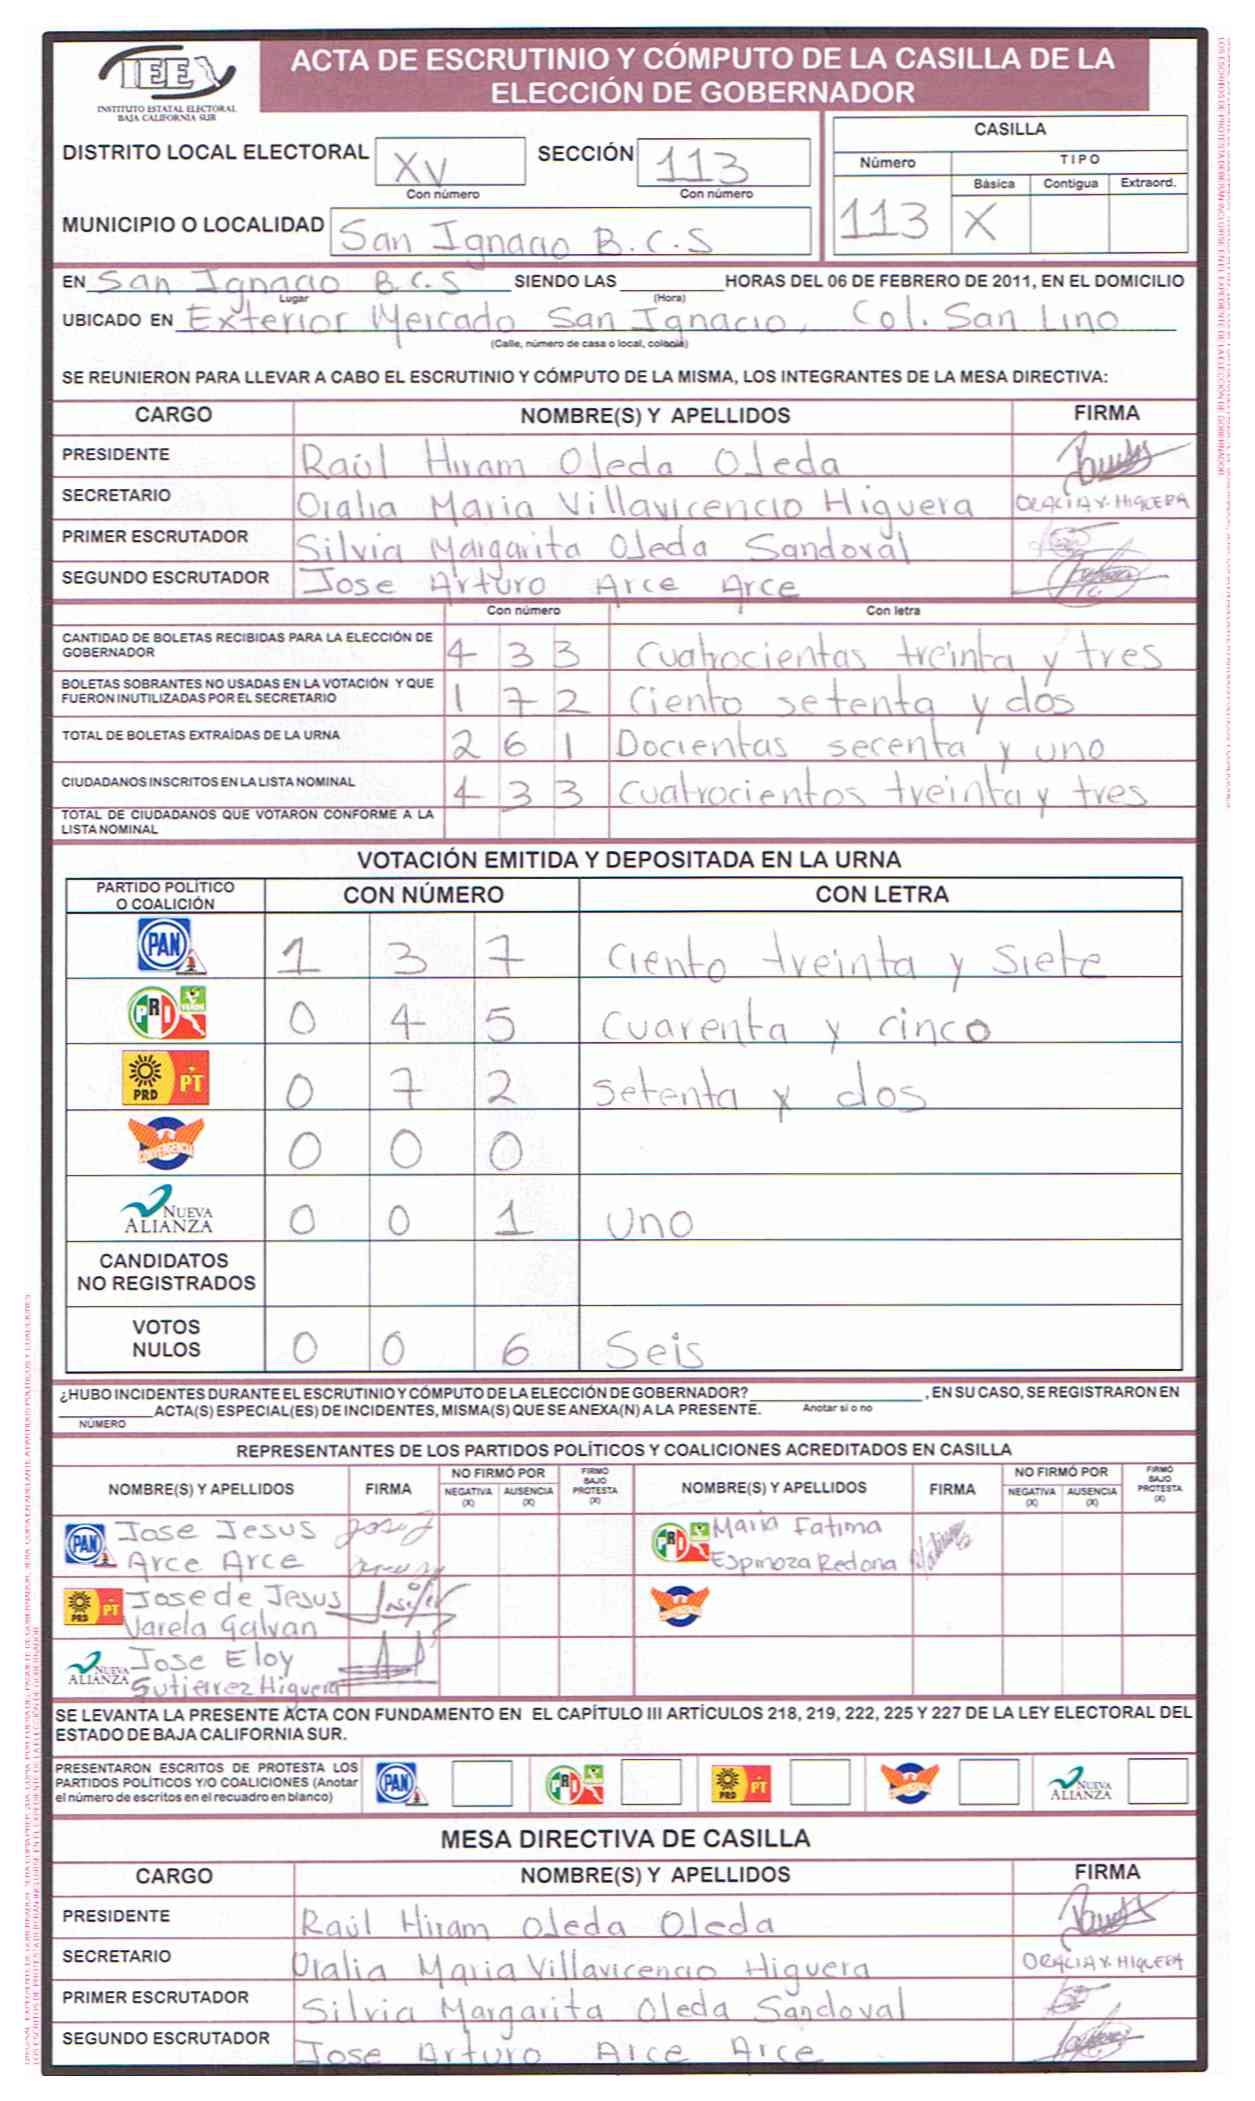 IEE
INSTITUTO ESTATAL ELECTORAL
BAJA CALIFORNIA SUR
ACTA DE ESCRUTINIO Y CÓMPUTO DE LA CASILLA DE LA
ELECCIÓN DE GOBERNADOR
DISTRITO LOCAL ELECTORAL XV SECCIÓN 113
Con número Con número
MUNICIPIO O LOCALIDAD San Ignacio B.C.S
CASILLA
Número TIPO
Básica Contigua Extraord.
113 X
EN San Ignacio B.C.S SIENDO LAS HORAS DEL 06 DE FEBRERO DE 2011, EN EL DOMICILIO
Lugar (Hora)
UBICADO EN Exterior Mercado San Ignacio, Col. San Lino
(Calle, número de casa o local, colonia)
SE REUNIERON PARA LLEVAR A CABO EL ESCRUTINIO Y CÓMPUTO DE LA MISMA, LOS INTEGRANTES DE LA MESA DIRECTIVA:
CARGO NOMBRE(S) Y APELLIDOS FIRMA
PRESIDENTE Raúl Hiram Ojeda Ojeda
SECRETARIO Oralia Maria Villavicencio Higuera ORALIA V. HIGUERA
PRIMER ESCRUTADOR Silvia Margarita Ojeda Sandoval
SEGUNDO ESCRUTADOR Jose Arturo Arce Arce
Con número Con letra
CANTIDAD DE BOLETAS RECIBIDAS PARA LA ELECCIÓN DE
GOBERNADOR 4 3 3 Cuatrocientas treinta y tres
BOLETAS SOBRANTES NO USADAS EN LA VOTACIÓN Y QUE
FUERON INUTILIZADAS POR EL SECRETARIO 1 7 2 Ciento setenta y dos
TOTAL DE BOLETAS EXTRAÍDAS DE LA URNA 2 6 1 Docientas secenta y uno
CIUDADANOS INSCRITOS EN LA LISTA NOMINAL 4 3 3 Cuatrocientos treinta y tres
TOTAL DE CIUDADANOS QUE VOTARON CONFORME A LA
LISTA NOMINAL
VOTACIÓN EMITIDA Y DEPOSITADA EN LA URNA
PARTIDO POLÍTICO
O COALICIÓN CON NÚMERO CON LETRA
PAN 1 3 7 Ciento treinta y siete
PRI VERDE 0 4 5 Cuarenta y cinco
PRD PT 0 7 2 setenta y dos
CONVERGENCIA 0 0 0
NUEVA
ALIANZA 0 0 1 uno
CANDIDATOS
NO REGISTRADOS
VOTOS
NULOS 0 0 6 Seis
¿HUBO INCIDENTES DURANTE EL ESCRUTINIO Y CÓMPUTO DE LA ELECCIÓN DE GOBERNADOR? , EN SU CASO, SE REGISTRARON EN
ACTA(S) ESPECIAL(ES) DE INCIDENTES, MISMA(S) QUE SE ANEXA(N) A LA PRESENTE. Anotar si o no
NÚMERO
REPRESENTANTES DE LOS PARTIDOS POLÍTICOS Y COALICIONES ACREDITADOS EN CASILLA
NOMBRE(S) Y APELLIDOS FIRMA NO FIRMÓ POR NEGATIVA (X) AUSENCIA (X) FIRMÓ BAJO PROTESTA (X) NOMBRE(S) Y APELLIDOS FIRMA NO FIRMÓ POR NEGATIVA (X) AUSENCIA (X) FIRMÓ BAJO PROTESTA (X)
PAN Jose Jesus PRI Maria Fatima
Arce Arce Espinoza Redona
PRD PT Jose de Jesus
Varela Galvan
NUEVA ALIANZA Jose Eloy
Gutierrez Higuera
SE LEVANTA LA PRESENTE ACTA CON FUNDAMENTO EN EL CAPÍTULO III ARTÍCULOS 218, 219, 222, 225 Y 227 DE LA LEY ELECTORAL DEL
ESTADO DE BAJA CALIFORNIA SUR.
PRESENTARON ESCRITOS DE PROTESTA LOS
PARTIDOS POLÍTICOS Y/O COALICIONES (Anotar
el número de escritos en el recuadro en blanco)
PAN PRI PRD PT NUEVA ALIANZA
MESA DIRECTIVA DE CASILLA
CARGO NOMBRE(S) Y APELLIDOS FIRMA
PRESIDENTE Raúl Hiram Ojeda Ojeda
SECRETARIO Oralia Maria Villavicencio Higuera ORALIA V. HIGUERA
PRIMER ESCRUTADOR Silvia Margarita Ojeda Sandoval
SEGUNDO ESCRUTADOR Jose Arturo Arce Arce